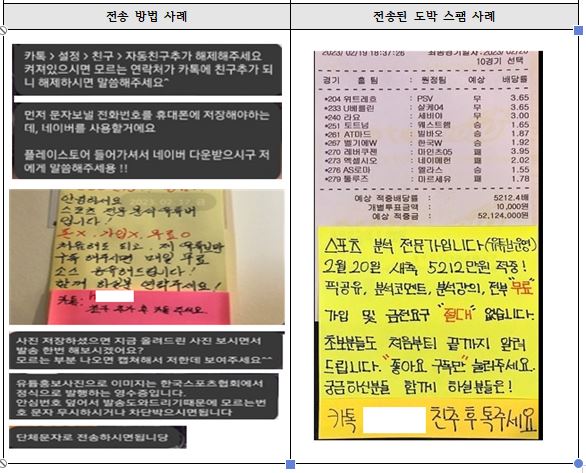 전송 방법 사례
카톡 > 설정 > 친구 > 자동친구추가 해제해주세요
켜져있으시면 모르는 연락처가 카톡에 친구추가 되
니 해제하시면 말씀해주세요~
먼저 문자보낼 전화번호를 휴대폰에 저장해야하는
데, 네이버를 사용할거에요
플레이스토어 들어가셔서 네이버 다운받으시구 저
에게 말씀해주세용 !!
안녕하세요
스포츠 전문 분석 유튜버
입니다!
돈X, 가입X, 무료O
구독 해주시면 매일 무료
소스 공유해드립니다!
함께 하실분 연락주세요!
카톡:
친구 추가 후 톡 주세요.
사진 저장하셨으면 지금 올려드린 사진 보시면서
발송 한번 해보시겠어요?
모르는 부분 나오면 캡쳐해서 저한테 보여주세요^^
유튭홍보사진으로 이미지는 한국스포츠협회에서
정식으로 발행하는 영수증입니다.
안심번호 덮어서 발송도와드리기때문에 모르는번
호 문자 무시하시거나 차단박으시면됩니다
단체문자로 전송하시면됩니당
전송된 도박 스팸 사례
2023/02/19 18:37:26 최종경기일자:2023/02/20
10경기 선택
경기 홈팀 : 원정팀 예상 배당률
*204 위트레흐 : PSV 무 3.65
*233 U베를린 : 살케04 무 3.65
*240 라요 : 세비야 무 3.00
*251 토트넘 : 웨스트햄 승 1.65
*261 AT마드 : 빌바오 승 1.87
*267 벨기에W : 한국W 승 1.92
*270 레버쿠젠 : 마인츠05 패 3.95
*273 엑셀시오 : 네이메헌 패 2.02
*276 AS로마 : 엘라스 승 1.55
*279 툴루즈 : 마르세유 패 1.78
예상 적중배당률 : 5212.4배
개별투표금액 : 10,000원
예상 적중금 : 52,124,000원
스포츠 분석 전문가입니다(유튜브운영)
2월 20일 새축 5212만원 적중!
픽공유, 분석코멘트, 분석강의, 전부 "무료"
가입 및 금전요구 "절대" 없습니다.
초보분들도 처음부터 끝까지 알려
드립니다. "좋아요 구독만" 눌러주세요.
궁금하신분들 함께 하실분은!
카톡 친추 후 톡주세요